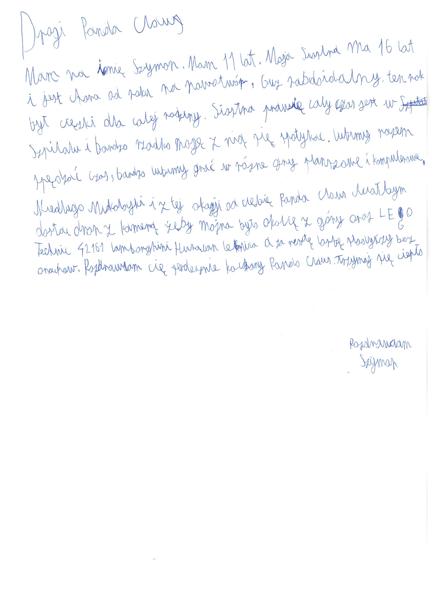 Drogi Panda Claus
Mam na imię Szymon. Mam 11 lat. Moja Siostra ma 16 lat
i jest chora od roku na nowotwór, ten rok
był ciężki dla całej rodziny. Siostra prawie cały czas jest w
Szpitalu i bardzo rzadko mogę z nią się spotykać. Lubimy razem
spędzać czas, bardzo lubimy grać w różne gry planszowe i komputerowe.
Niedługo Mikołajki i z tej okazji od ciebie Panda Claus chciałbym
dostać dron z kamerą żeby można było okolicę z góry oraz LEGO
Technic 42161 Lamborghini Huracan a za resztę
Pozdrawiam cię serdecznie kochany Panda Claus. Trzymaj się ciepło
Pozdrawiam
Szymon